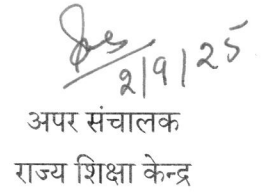 2/9/25
अपर संचालक
राज्य शिक्षा केन्द्र